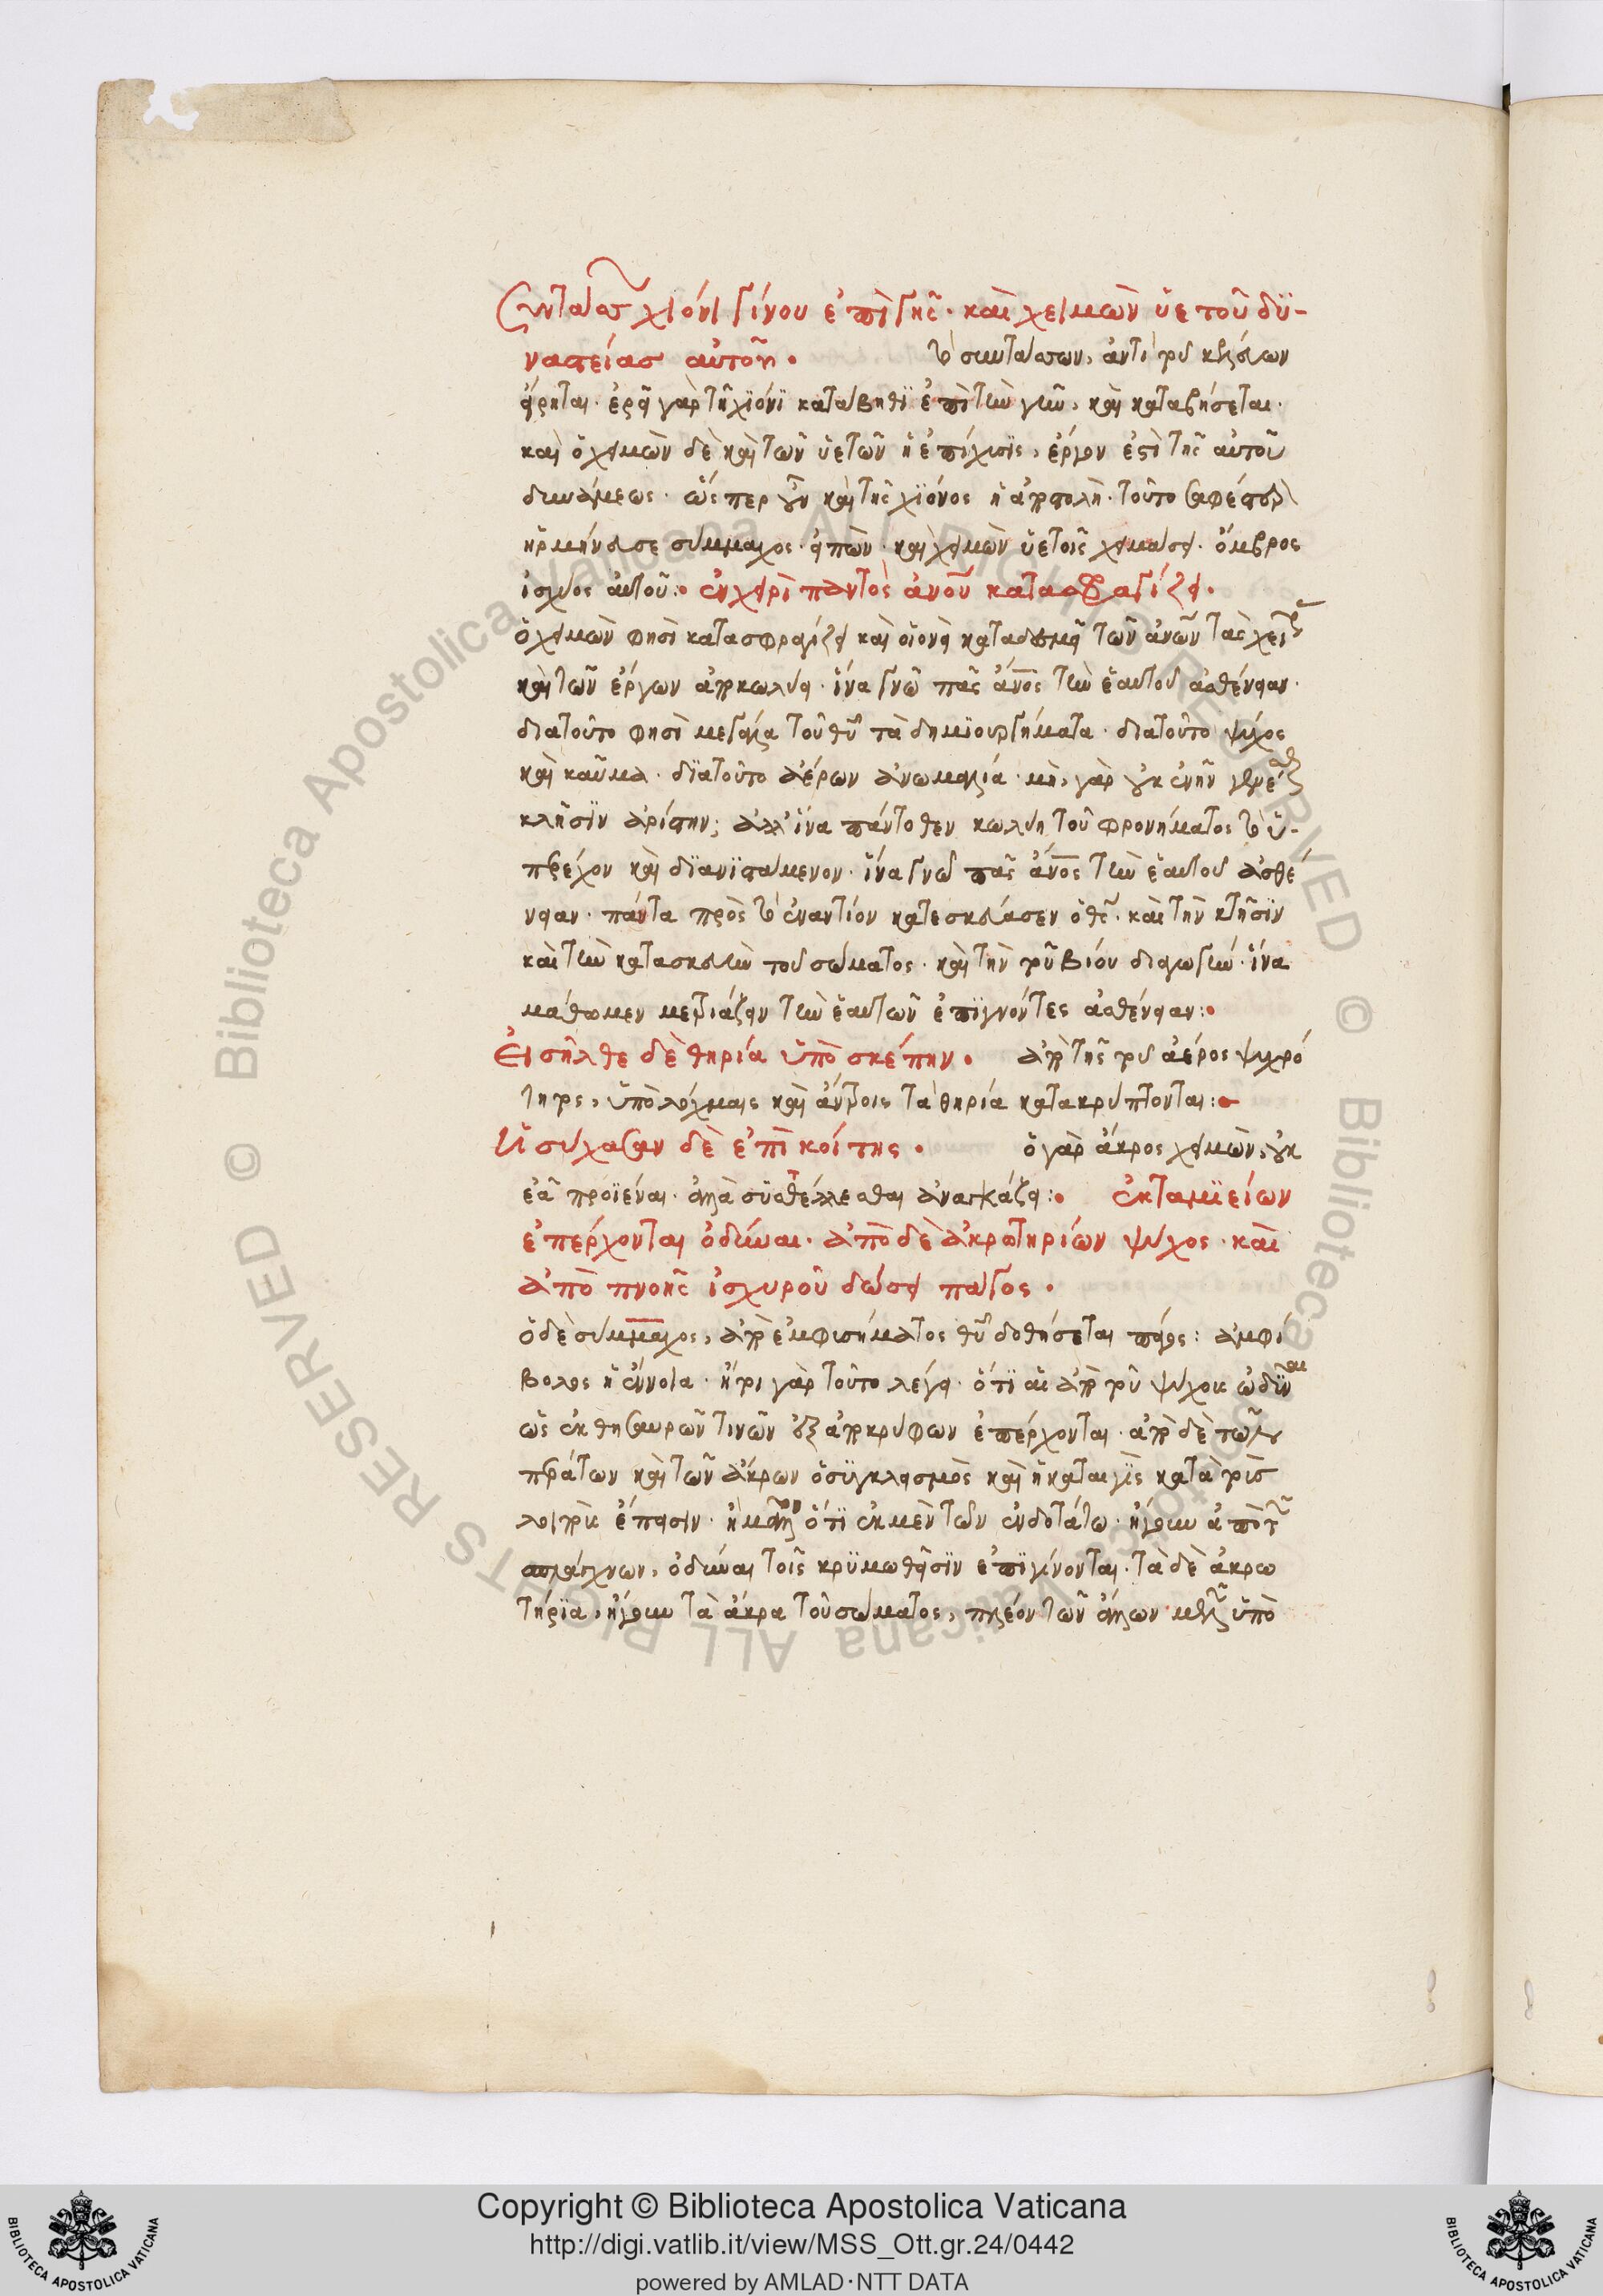 Συντάσσων χιόνι γίνου ἐπὶ γῆς· καὶ χειμὼν ὑετοῦ δυ-
ναστείας αὐτοῦ·
τὸ συντάσσων, ἀντὶ τοῦ κελεύων
εἴρηται· ἐρεῖ γὰρ τῇ χϊόνϊ κατάβηθϊ ἐπὶ τὴν γῆν, καὶ καταβήσεται·
καὶ ὁ χειμὼν δὲ καὶ τῶν ὑετῶν ἡ ἐπίχυσϊς, ἔργον ἐστὶ τῆς αὐτοῦ
δυνάμεως· ὥσπερ οὖν καὶ τῆς χϊόνος ἡ ἀποστολή· τοῦτο σαφέστερον
ἡρμήνευσε σύμμαχος εἰπὼν· καὶ χειμὼν ὑετοῖς χειμάσει· ὄμβρος
ἰσχύος αὐτοῦ: ἐν χειρὶ παντὸς ἀνου κατασφραγίζει·
ὁ χειμών φησὶ κατασφραγίζει καὶ οἱονεὶ καταδεσμεῖ τῶν ἀνων τὰς χεῖρας
καὶ τῶν ἔργων ἀποκωλύει· ἵνα γνῷ πᾶς ἄνος τὴν ἑαυτοῦ ἀσθένειαν·
διατοῦτο φησὶ μεγάλα τοῦ θυ τὰ δημϊουργήματα· διατοῦτο ψύχος
καὶ καῦμα· δϊατοῦτο ἀέρων ἀνωμαλία· μὴ γὰρ οὐκ ἐνῆν
κλῆσϊν ἀρίστην; ἀλλ' ἵνα πάντοθεν κωλύῃ τοῦ φρονήματος τὸ ὑ-
περέχον καὶ δϊανϊστάμενον· ἵνα γνῷ πᾶς ἄνος τὴν ἑαυτοῦ ἀσθέ
νειαν· πάντα πρὸς τὸ ἐναντίον κατεσκεύασεν ὁ θς· καὶ τὴν κτῆσϊν
καὶ τὴν κατασκευὴν τοῦ σώματος· καὶ τὴν τοῦ βίου διαγωγήν· ἵνα
μάθωμεν μετριάζειν τὴν ἑαυτῶν ἐπϊγνόντες ἀσθένειαν:
Εἰσῆλθε δὲ θηρία ὑπὸ σκέπην· ἀπὸ τῆς τοῦ ἀέρος ψυχρό
τητος, ὑπὸ λόχμαις καὶ ἄντροις τὰ θηρία κατακρύπτονται:
Ἡσύχασαν δὲ ἐπὶ κοίτης· ὁ γὰρ ἄκρος χειμὼν, οὐκ
ἐᾷ προϊέναι· ἀλλὰ συστέλλεσθαι ἀναγκάζει: ἐκ ταμϊείων
ἐπέρχονται ὀδύναι· ἀπὸ δὲ ἀκρωτηρίων ψύχος· καὶ
ἀπὸ πνοῆς ἰσχυροῦ δώσει πάγος·
ὁ δὲ σύμμαχος, ἀπὸ ἐμφυσήματος θυ δοθήσεται πάγος: ἀμφί
βολος ἡ ἔννοια· ἤτοι γὰρ τοῦτο λέγει· ὅτϊ αἱ ἀπὸ τοῦ ψύχους ὠδῖναι
ὡς ἐκ θησαυρῶν τινῶν ἐξ ἀποκρύφων ἐπέρχονται· ἀπὸ δὲ τῶν
περάτων καὶ τῶν ἄκρων ὁ συγκλεισμὸς καὶ ἡ καταιγὶς κατὰ τοὺς
λοιποὺς ἔπεισιν· ἢ μᾶλλον ὅτϊ ἐκ μὲν τῶν ἐνδοτάτω· ἤγουν ἀπὸ τῶν
σπλάγχνων, ὀδύναι τοῖς κρϋμωθεῖσϊν ἐπϊγίνονται· τὰ δὲ ἀκρω
τήρϊα, ἤγουν τὰ ἄκρα τοῦ σώματος, πλέον τῶν ἄλλων μελῶν ὑπὸ
Copyright © Biblioteca Apostolica Vaticana
http://digi.vatlib.it/view/MSS_Ott.gr.24/0442
powered by AMLAD·NTT DATA